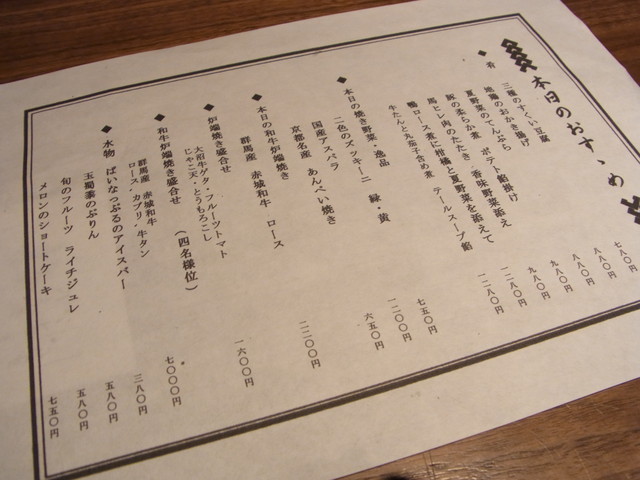 本日のおすゝめ
◆ 肴
三種のすくい豆腐 七八〇円
地鶏のおかき揚げ 八八〇円
夏野菜のてんぷら 八八〇円
豚の柔らか煮 ポテト餡掛け 九八〇円
馬ヒレ肉のたたき 香味野菜添え 九八〇円
鴨ロース煮に柑橘と夏野菜を添えて 一二八〇円
牛たんと丸茄子含め煮 テールスープ餡 一二八〇円
◆ 本日の焼き野菜・逸品
二色のズッキーニ 緑・黄 七五〇円
国産アスパラ 一二〇〇円
京都名産 あんぺい焼き 六五〇円
◆ 本日の和牛炉端焼き
群馬産 赤城和牛 ロース 二二〇〇円
◆ 炉端焼き盛合せ
大沼牛ゲタ・フルーツトマト
じゃこ天・とうもろこし 一六〇〇円
◆ 和牛炉端焼き盛合せ (四名様位)
群馬産 赤城和牛
ロース・カブリ・牛タン 七〇〇〇円
◆ 水物 ぱいなっぷるのアイスバー 三八〇円
玉蜀黍のぷりん 五八〇円
旬のフルーツ ライチジュレ 五八〇円
メロンのショートケーキ 七五〇円